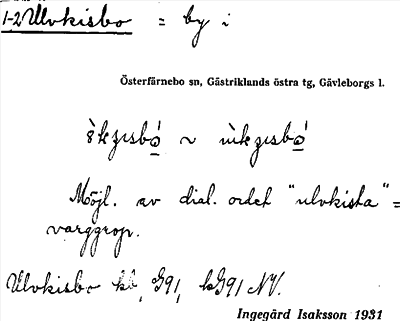 1-2 Ulvkisbo = by i
Österfärnebo sn, Gästriklands östra tg, Gävleborgs l.
Möjl. av dial. ordet "ulvkista" =
varggrop.
Ulvkisbo kb, G91, hG91 NV.
Ingegärd Isaksson 1931